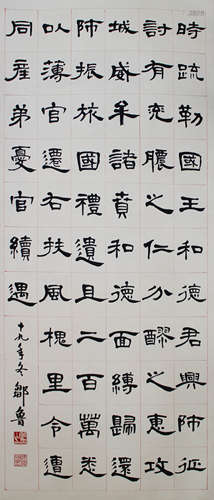 時疏勒國王和德君興師征
討有兗膿之仁分醪之惠攻
城威牟諸賁和德面縛歸還
師振旅國禮遺且二百萬悉
以薄官遷右扶風槐里令遭
同產弟憂官續遇
十九年冬鄒魯